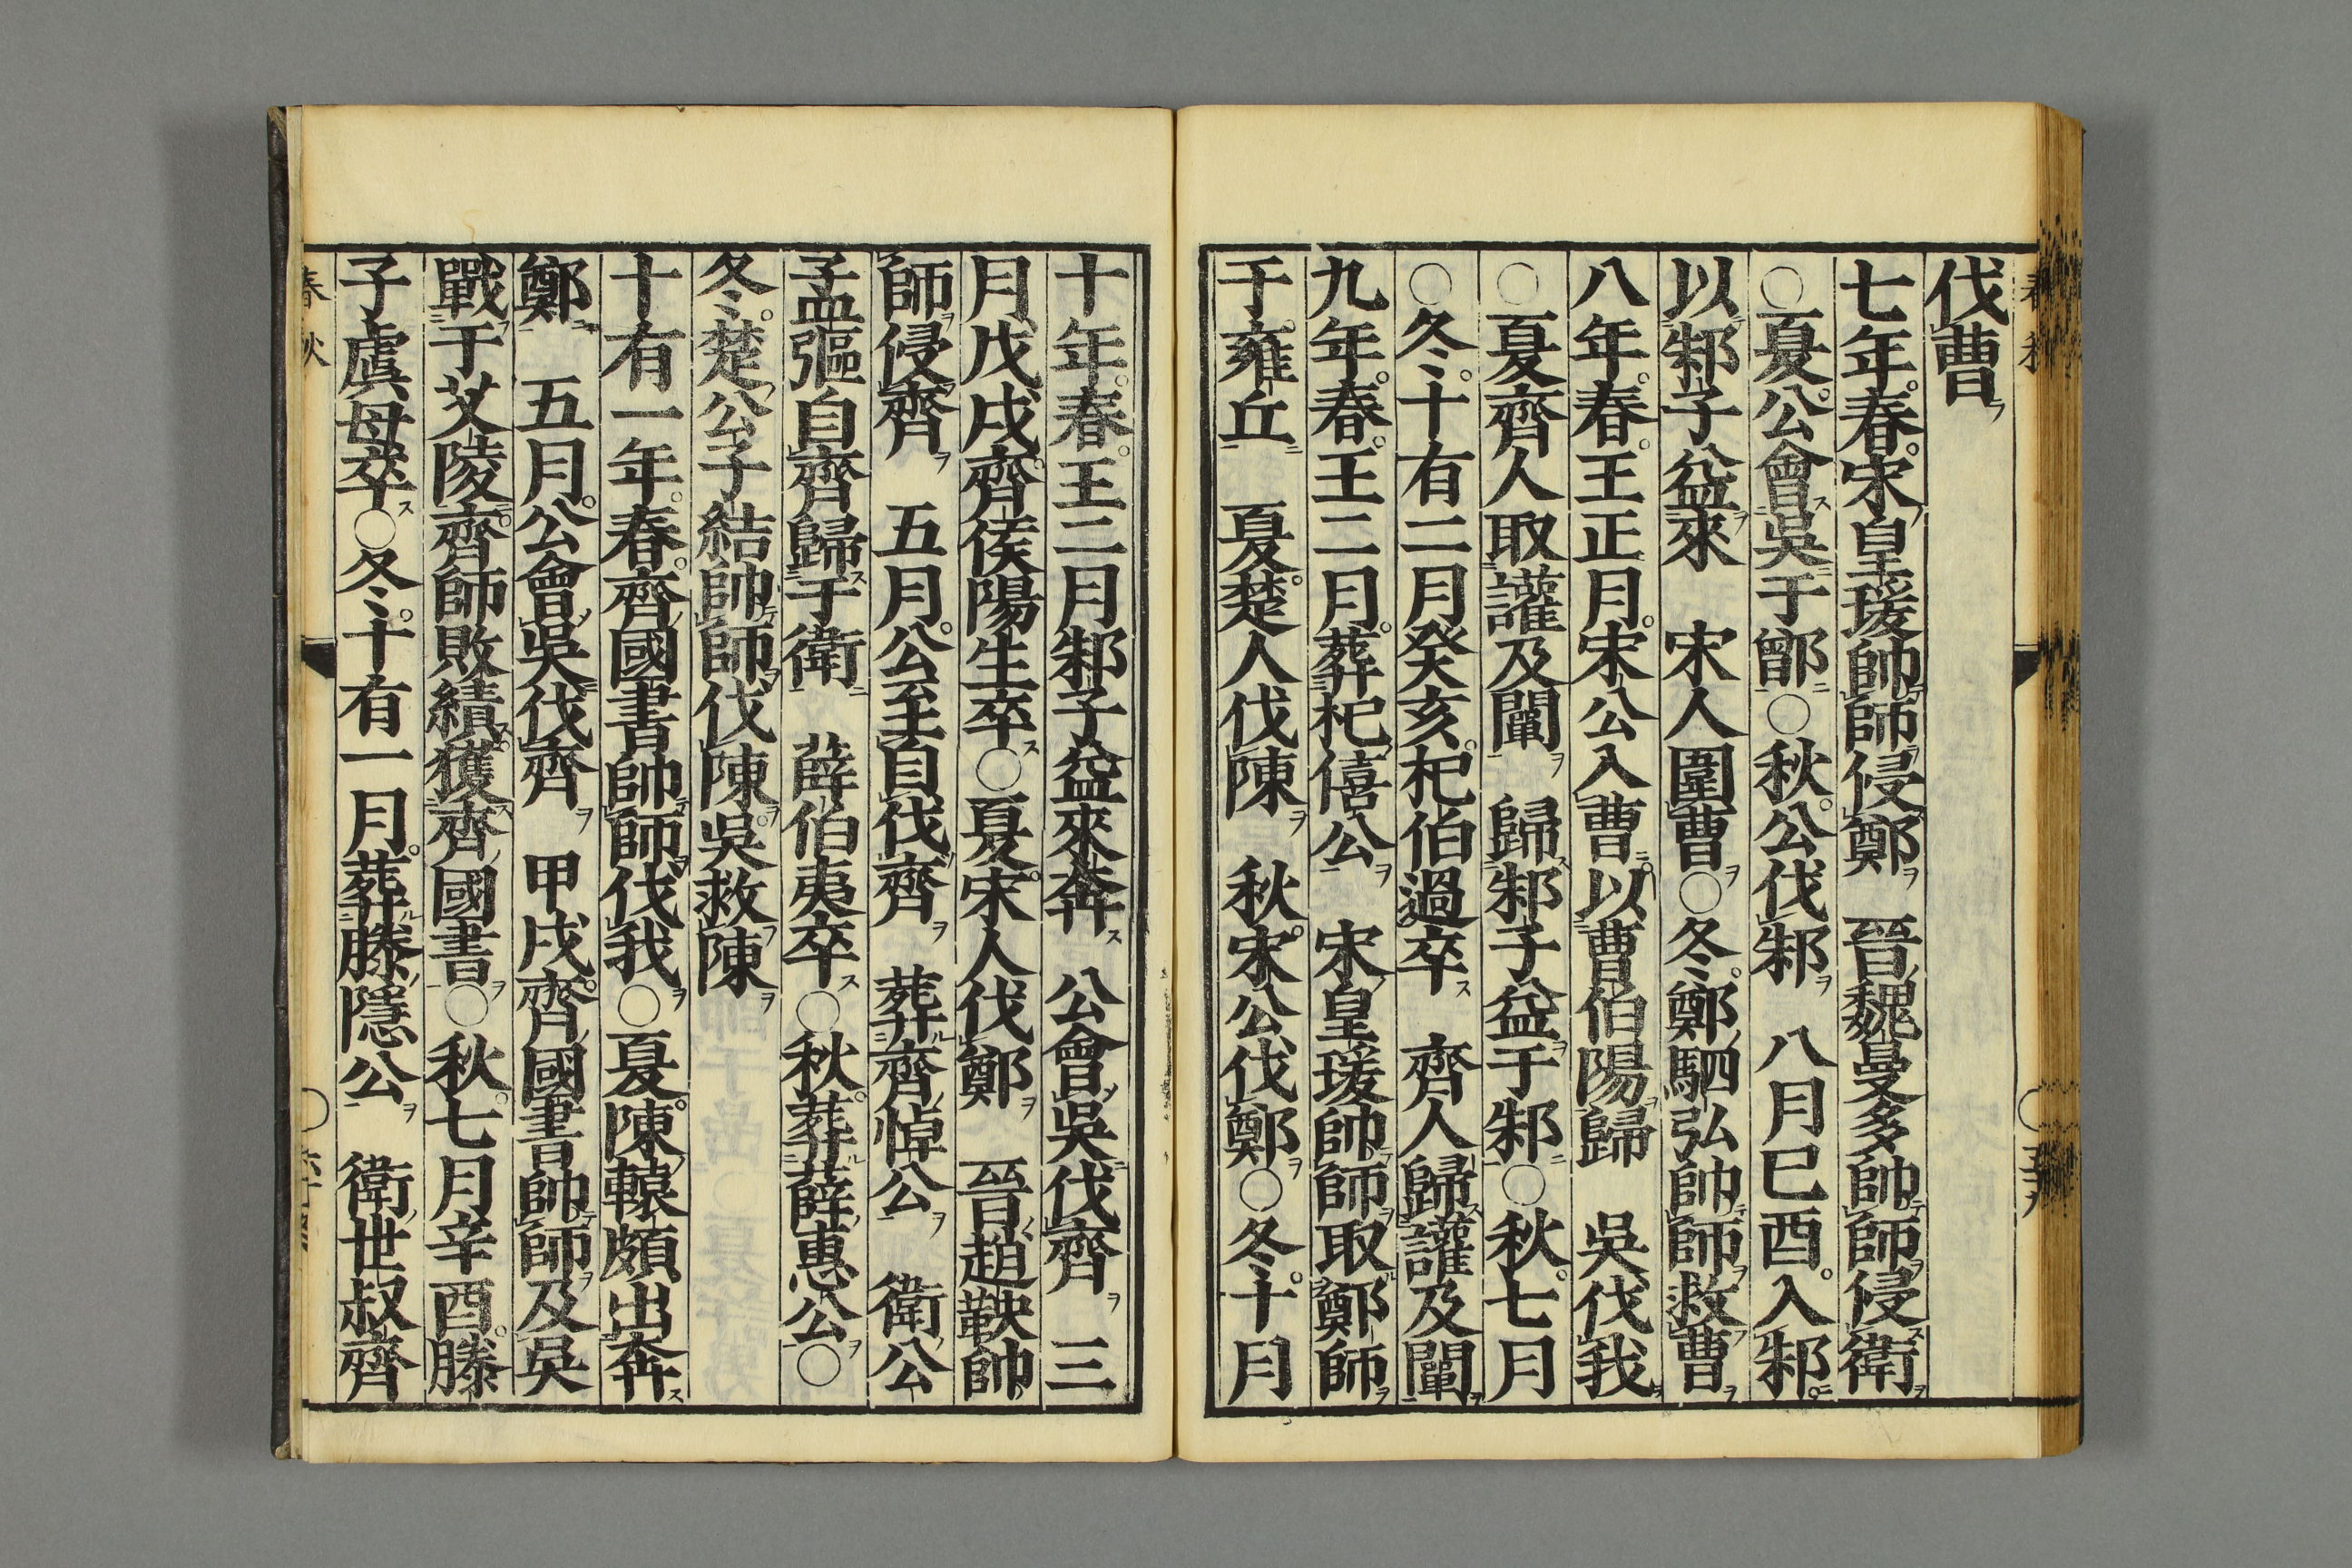 伐曹ヲ
七年春宋皇瑗帥師侵鄭ヲ　晉魏曼多帥師侵衛ヲ
○夏公會吳于鄫○秋公伐邾ヲ　八月己酉入邾
以邾子益來　宋人圍曹ヲ○冬鄭駟弘帥師救曹ヲ
八年春王正月宋公入曹以曹伯陽歸　吳伐我
○夏齊人取讙及闡ヲ　歸邾子益于邾○秋七月
○冬十有二月癸亥杞伯過卒ス　齊人歸讙及闡ヲ
九年春王二月葬杞僖公ヲ　宋皇瑗帥師取鄭師ヲ
于雍丘　夏楚人伐陳ヲ　秋宋公伐鄭ヲ○冬十月
十年春王二月邾子益來奔ス　公會吳伐齊ヲ　三
月戊戌齊侯陽生卒ス○夏宋人伐鄭ヲ　晉趙鞅帥
師侵齊ヲ　五月公至自伐齊ヲ　葬齊悼公ヲ　衛公
孟彄自齊歸于衛　薛伯夷卒ス○秋葬薛惠公ヲ○
冬楚公子結帥師伐陳吳救陳ヲ
十有一年春齊國書帥師伐我ヲ○夏陳轅頗出奔ス
鄭　五月公會吳伐齊ヲ　甲戌齊國書帥師及吳
戰于艾陵齊師敗績獲齊國書ヲ○秋七月辛酉滕
子虞母卒ス○冬十有一月葬滕隱公ヲ　衛世叔齊
春秋